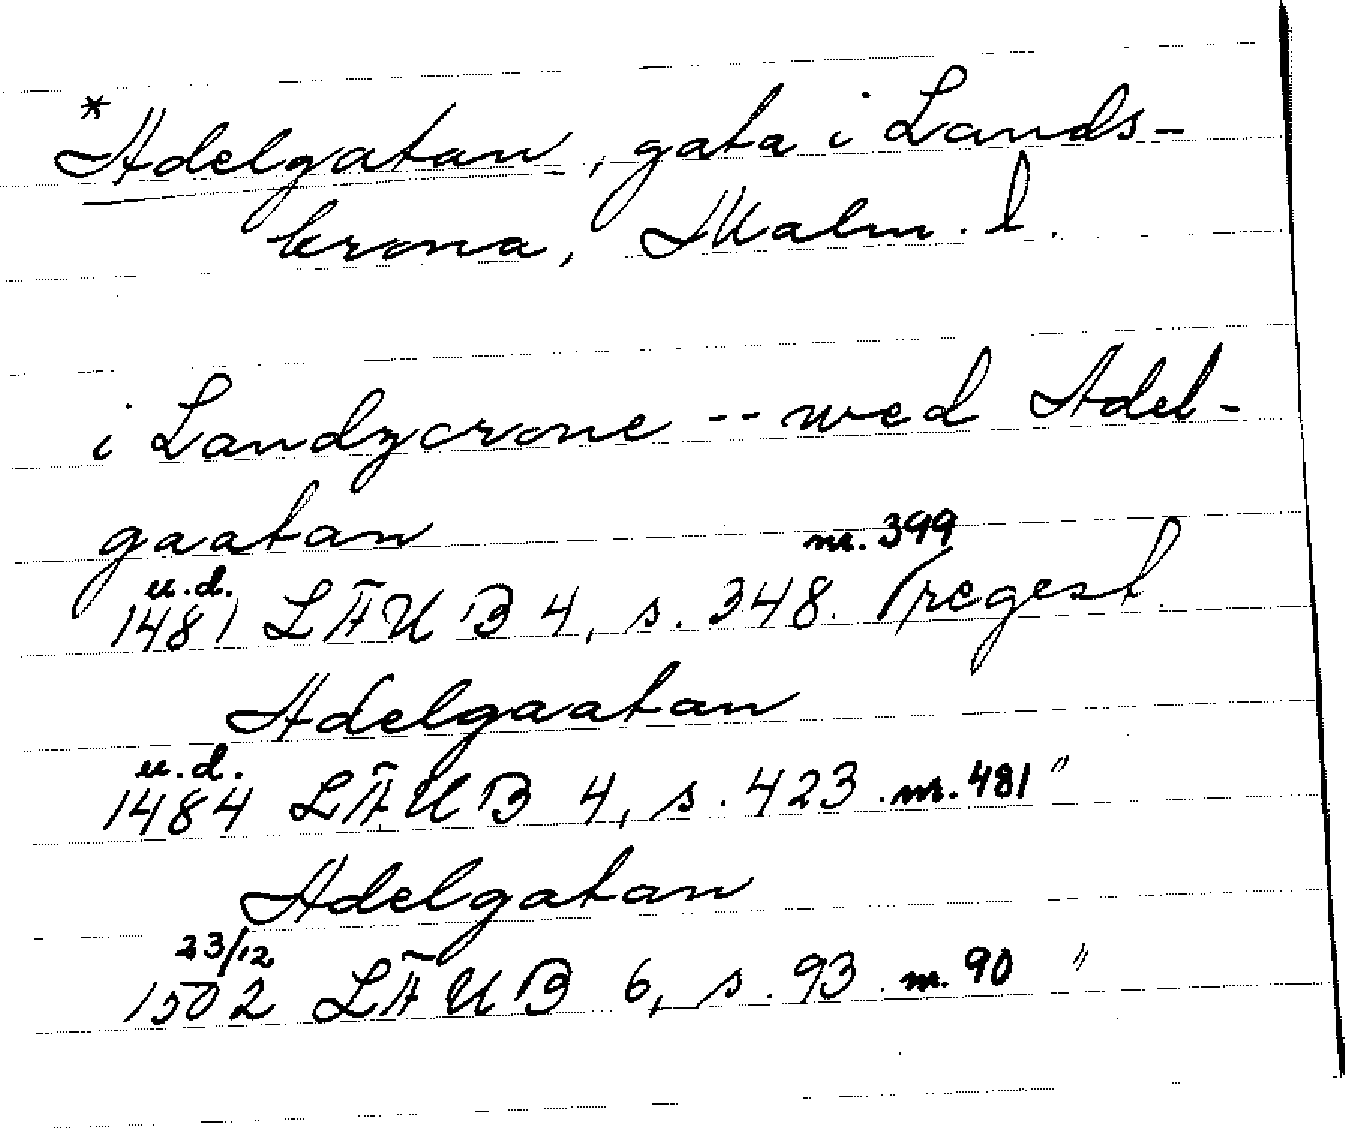 *Adelgatan, gata i Lands-
krona, Malm. l.
i Landzcrone -- wed Adel-
gaatan
u.d. nr. 399
1481 LÄUB 4, s. 348. regest.
Adelgaatan
u.d.
1484 LÄUB 4, s. 423. nr. 481 "
Adelgatan
23/12
1502 LÄUB 6, s. 93. nr. 90 "